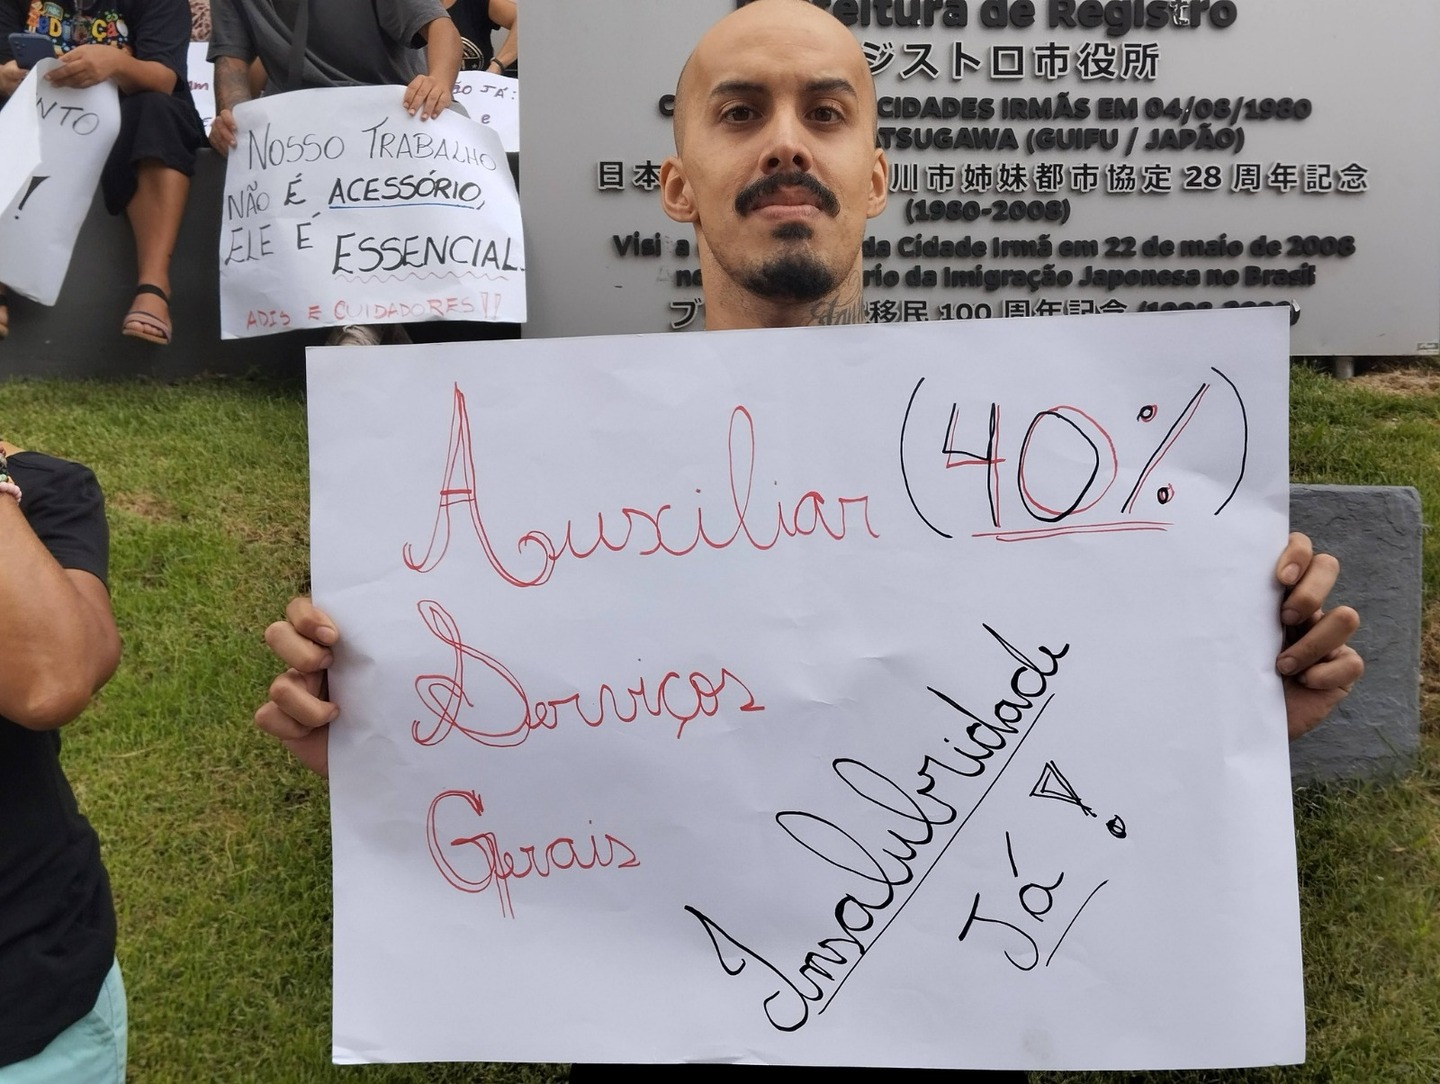 Prefeitura de Registro
ジストロ市役所
CIDADES IRMÃS EM 04/08/1980
(GUIFU / JAPÃO)
日本 川市姉妹都市協定 28 周年記念
(1980-2008)
da Cidade Irmã em 22 de maio de 2008
da Imigração Japonesa no Brasil
移民 100 周年記念
NTO
!
NOSSO TRABALHO
NÃO É ACESSÓRIO,
ELE É
ESSENCIAL.
ADIS E CUIDADORES!!
JÁ!
e
Auxiliar (40%)
Serviços
Gerais
Insalubridade
Já!